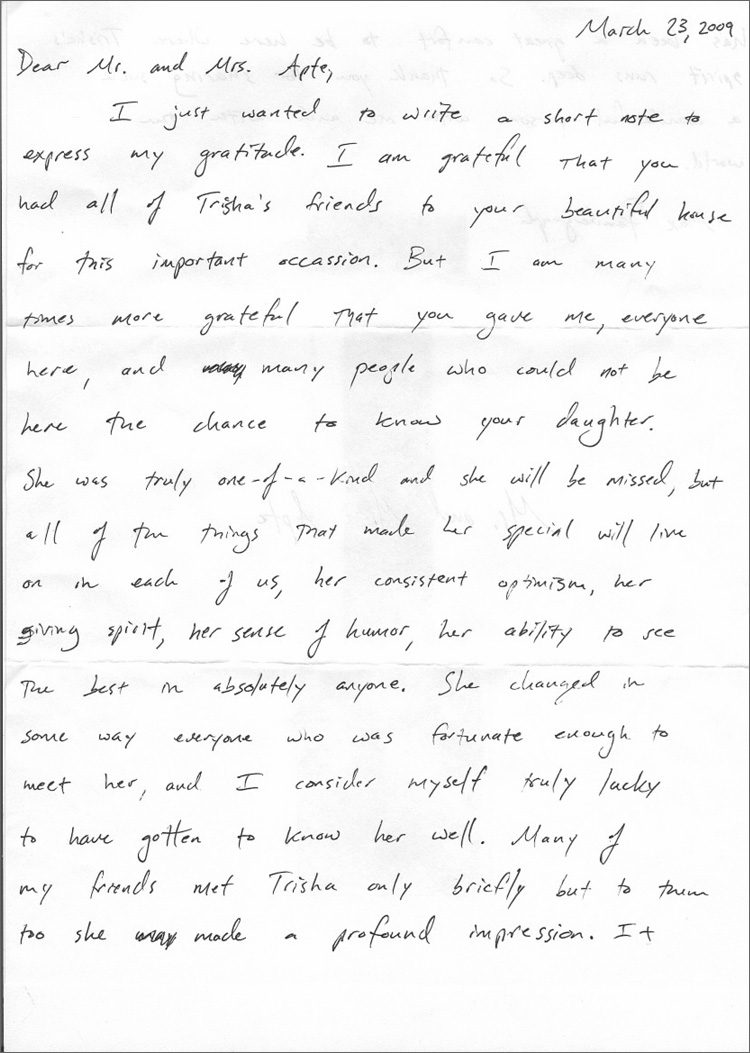 March 23, 2009
Dear Mr. and Mrs. Apte,
I just wanted to write a short note to
express my gratitude. I am grateful that you
had all of Trisha's friends to your beautiful house
for this important occassion. But I am many
times more grateful that you gave me, everyone
here, and many people who could not be
here the chance to know your daughter.
She was truly one-of-a-kind and she will be missed, but
all of the things that made her special will live
on in each of us, her consistent optimism, her
giving spirit, her sense of humor, her ability to see
the best in absolutely anyone. She changed in
some way everyone who was fortunate enough to
meet her, and I consider myself truly lucky
to have gotten to know her well. Many of
my friends met Trisha only briefly but to them
too she made a profound impression. It